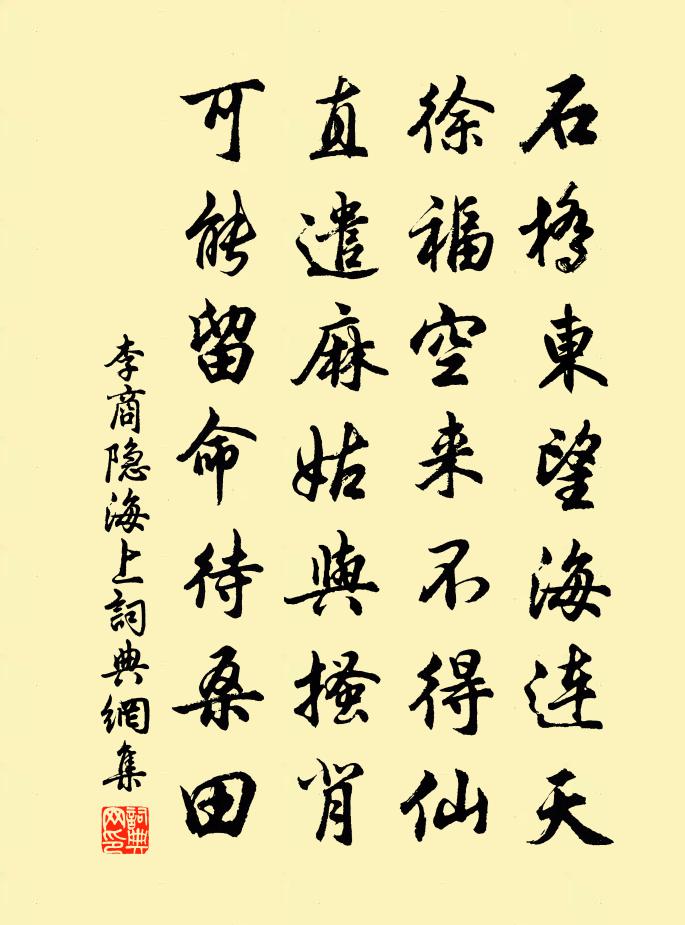 石橋東望海連天
徐福空来不得仙
直遣麻姑與搔背
可能留命待桑田
李商隐海上詞典網集
詞典網印